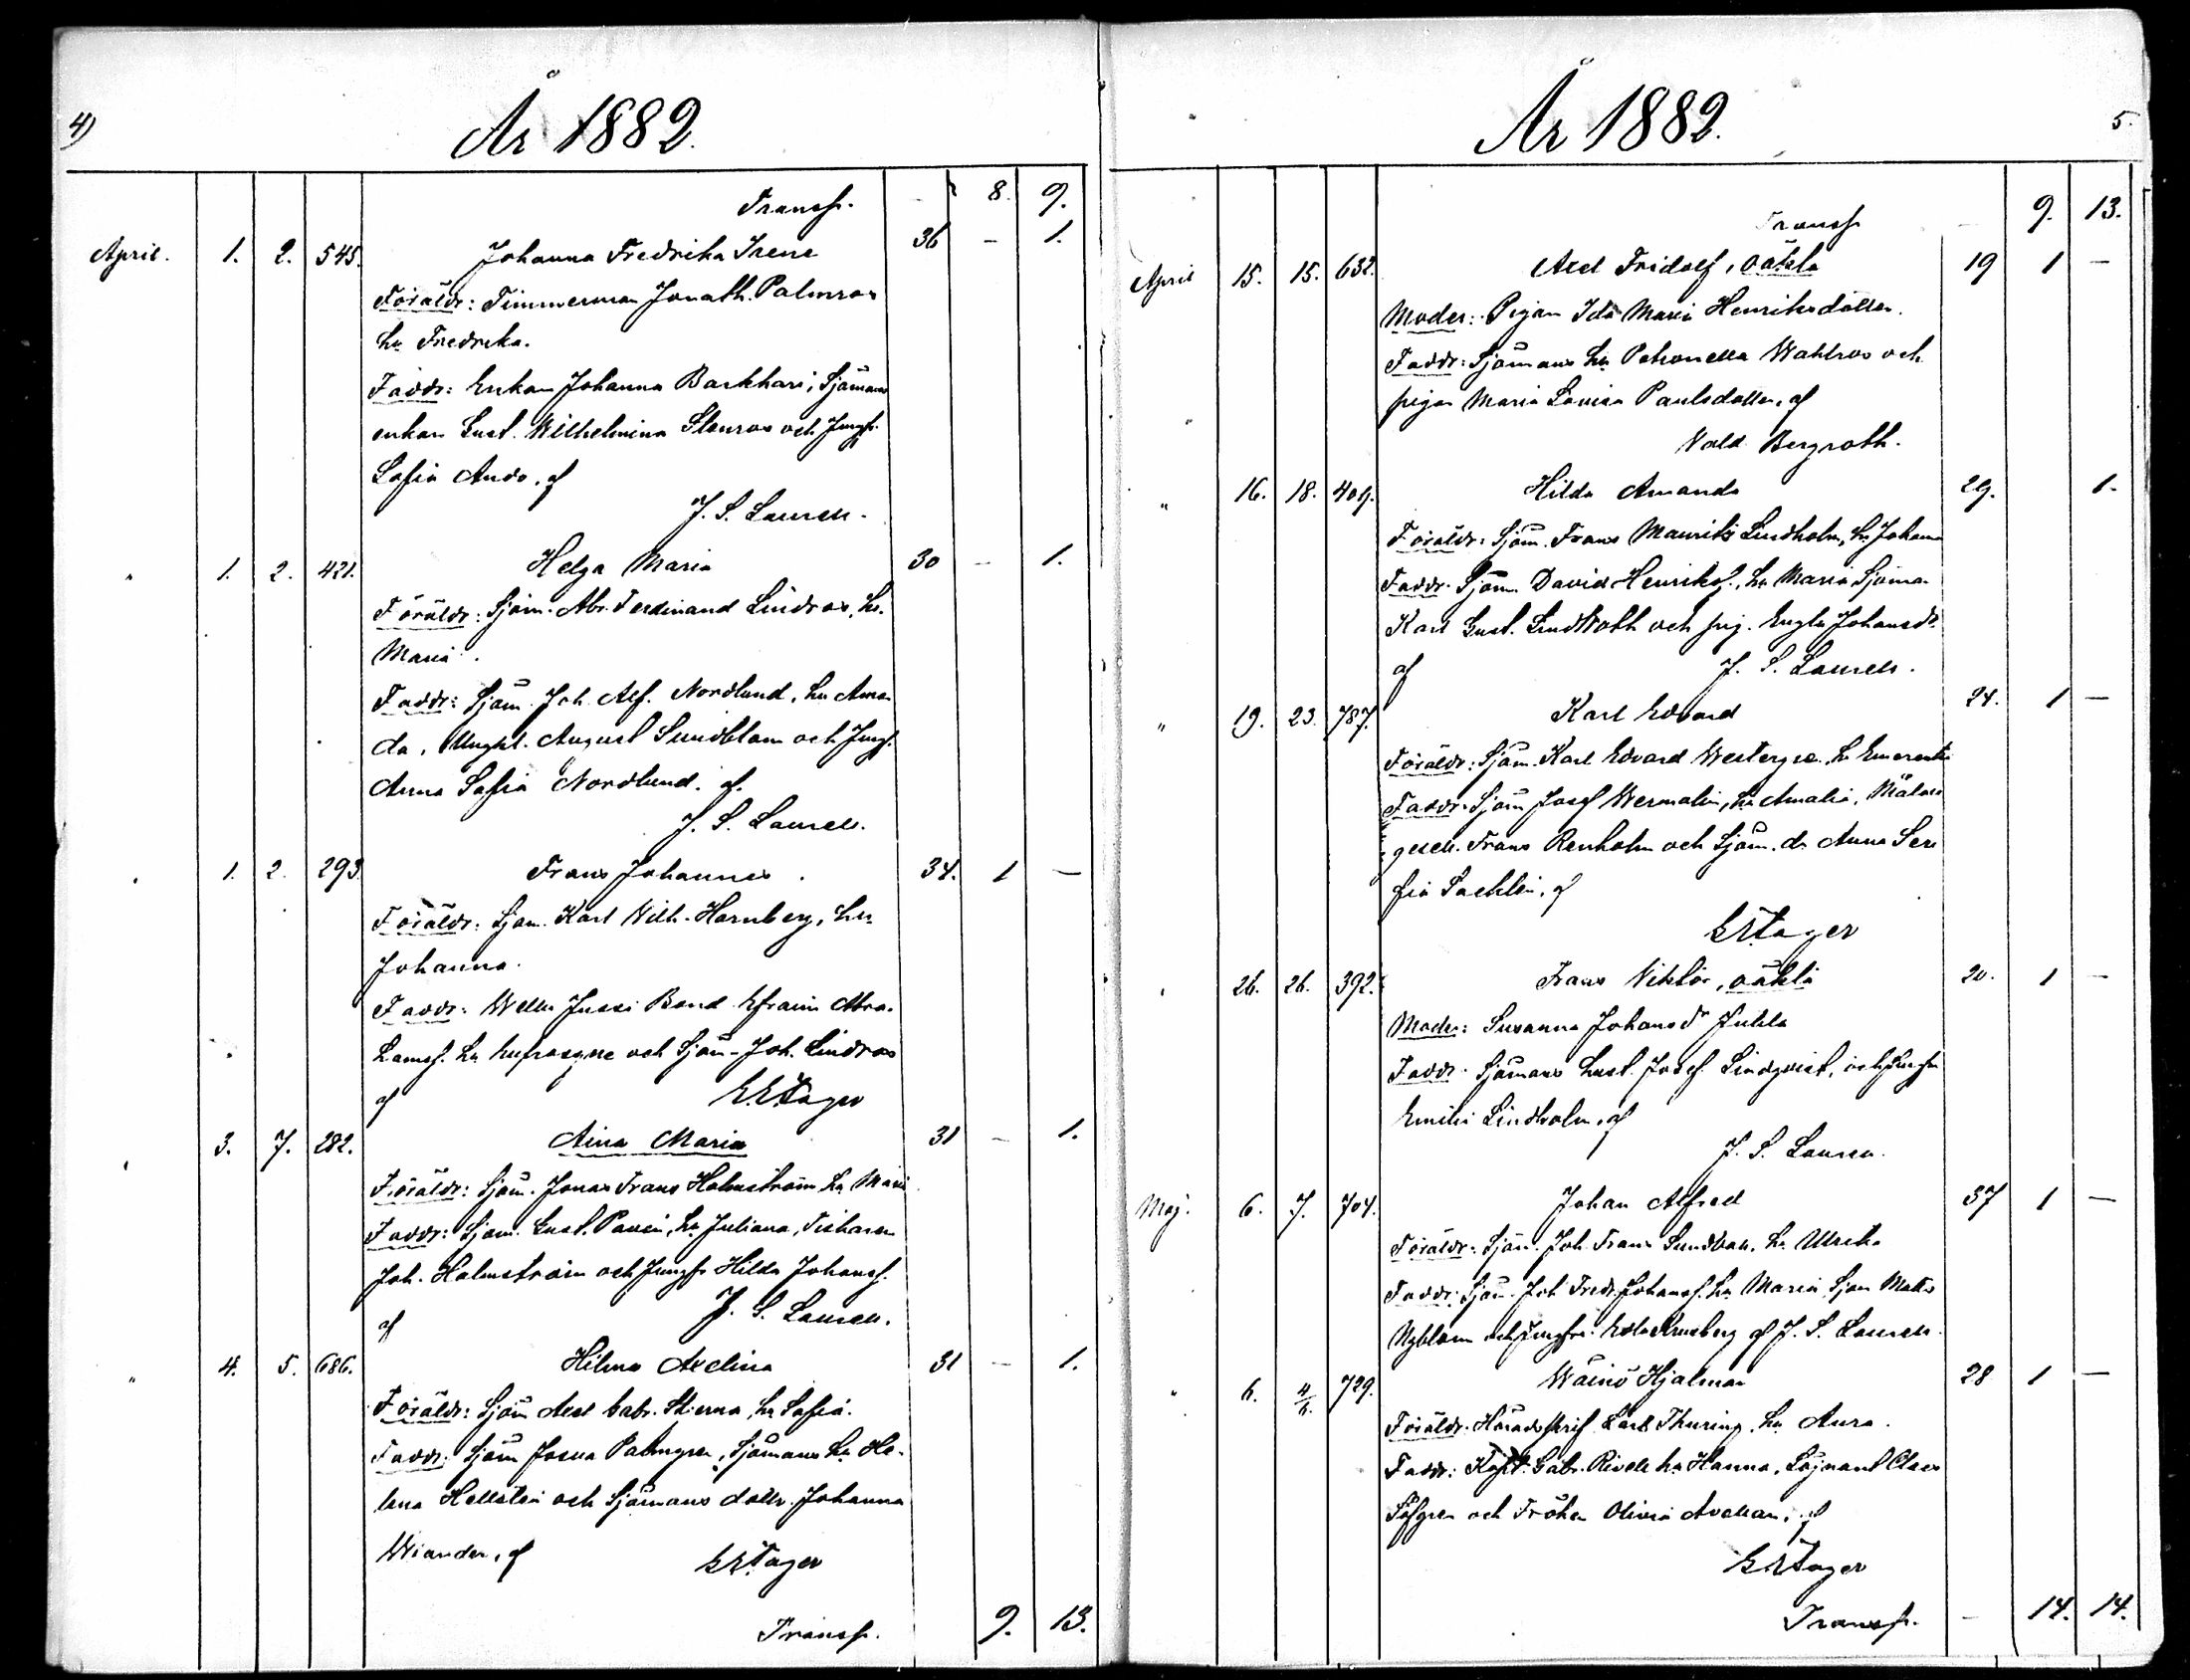 4)
År 1882.
Transp. 8. 9.
April. 1. 2. 545. Johanna Fredrika Irene 36 - 1.
Föräldr: Timmerman Jonath. Palmros
hu Fredrika.
Faddr: Enkan Johanna Backhari, Sjömans
enkan Gust. Wilhelmina Stenros och Jungfr.
Sofia Ando, af
J. S. Laurell.
" 1. 2. 421. Helga Maria 30 - 1.
Föräldr: Sjöm. Abr. Ferdinand Lindros, hu.
Maria.
Faddr: Sjöm. Joh. Alf. Nordlund, hu Aman
da, Ungkl. August Sundblom och Jungf.
Anna Sofia Nordlund. af.
J. S. Laurell.
" 1. 2. 293. Frans Johannes. 34. 1 -
Föräldr: Sjöm. Karl Wilh. Hornberg, hu
Johanna.
Faddr: Jussi Efraim Abra-
hamsf. hu Eufrosyne och Sjöm. Joh. Lindros
af
" 3. 7. 282. Aina Maria 31 - 1.
Föräldr: Sjöm. Jonas Frans Holmström hu Maria
Faddr: Sjöm. Gust. hu Juliana, Fiskaren
Joh. Holmström och Jungfr Hilda Johansf.
af J. S. Laurell.
" 4. 5. 686. Hilma Avelina 31 - 1.
Föräldr: Sjöm Axel Gabr. Stierna, hu Sofia.
Faddr: Sjöm Josua Palmgren, Sjömans hu He-
lena Hellsten och Sjömans dottr. Johanna
Wiander, af
Transp. 9. 13.
5.
År 1882.
Transp - 9. 13.
April 15. 15. 632. Axel Fridolf, oäkta 19 1 -
Moder: Pigan Ida Maria Henriksdotter.
Faddr: Sjömans hu Petronella Wahlros och
pigan Maria Lovisa Paulsdotter, af
Vald. Bergroth.
" 16. 18. 409. Hilda Amanda 29. 1.
Föräldr: Sjöm. Frans Maurits Lindholm, hu Johana
Faddr. Sjöm. David Henriksf., hu Maria Sjöma.
Karl Gust. Lindroth och pig. Engla Johansdr
af J. S. Laurell.
" 19. 23. 787. Karl Edvard 24. 1 -
Föräldr: Sjöm. Karl Edvard Westergren. hu Emerentia
Faddr: Sjöm Josef Wermelin, hu Amalia, Målare
gesell. Frans Renholm och Sjöm. dr Anna Sera
fia af
" 26. 26. 392. Frans Viktor, oäkta 20. 1 -
Moder: Susanna Johansdr Juhla
Faddr. Sjömans Gust. Josef Lindqvist, och Jungfru
Emilia Lindholm, af
J. S. Laurell.
Maj. 6. 7. 704. Johan Alfred 37 1 -
Föräldr: Sjöm. Joh. Frans Sundvall. hu Ulrika
Faddr: Sjöm. Joh Fredr. Johansf. hu Maria, Sjöm Matts
Nyblom och Jungfr: af J. S. Laurell.
" 6. 4/6. 729. Wäinö Hjalmar 28 1 -
Föräldr: Häradsskrif. Karl Thuring, hu Aura.
Faddr: Kapt. Gabr. Rivell hu Hanna, Löjnant Claes
Löfgren och Fröken Olivia Avellan, af
Transp. - 14. 14.